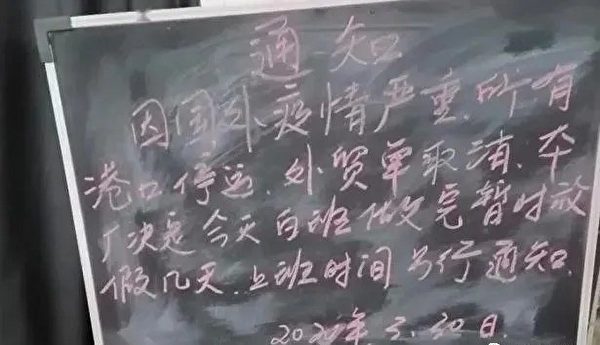 通知
因国外疫情严重.所有
港口停运.外贸单取消.本
厂决定今天白班做完暂时放
假几天.上班时间另行通知.
2020年3.30日.